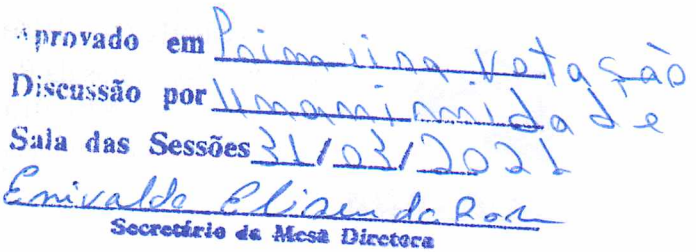 Aprovado em Primeira Votação
Discussão por Unanimidade
Sala das Sessões 31/03/2021
Enivaldo Eliseu da
Secretário da Mesa Diretora